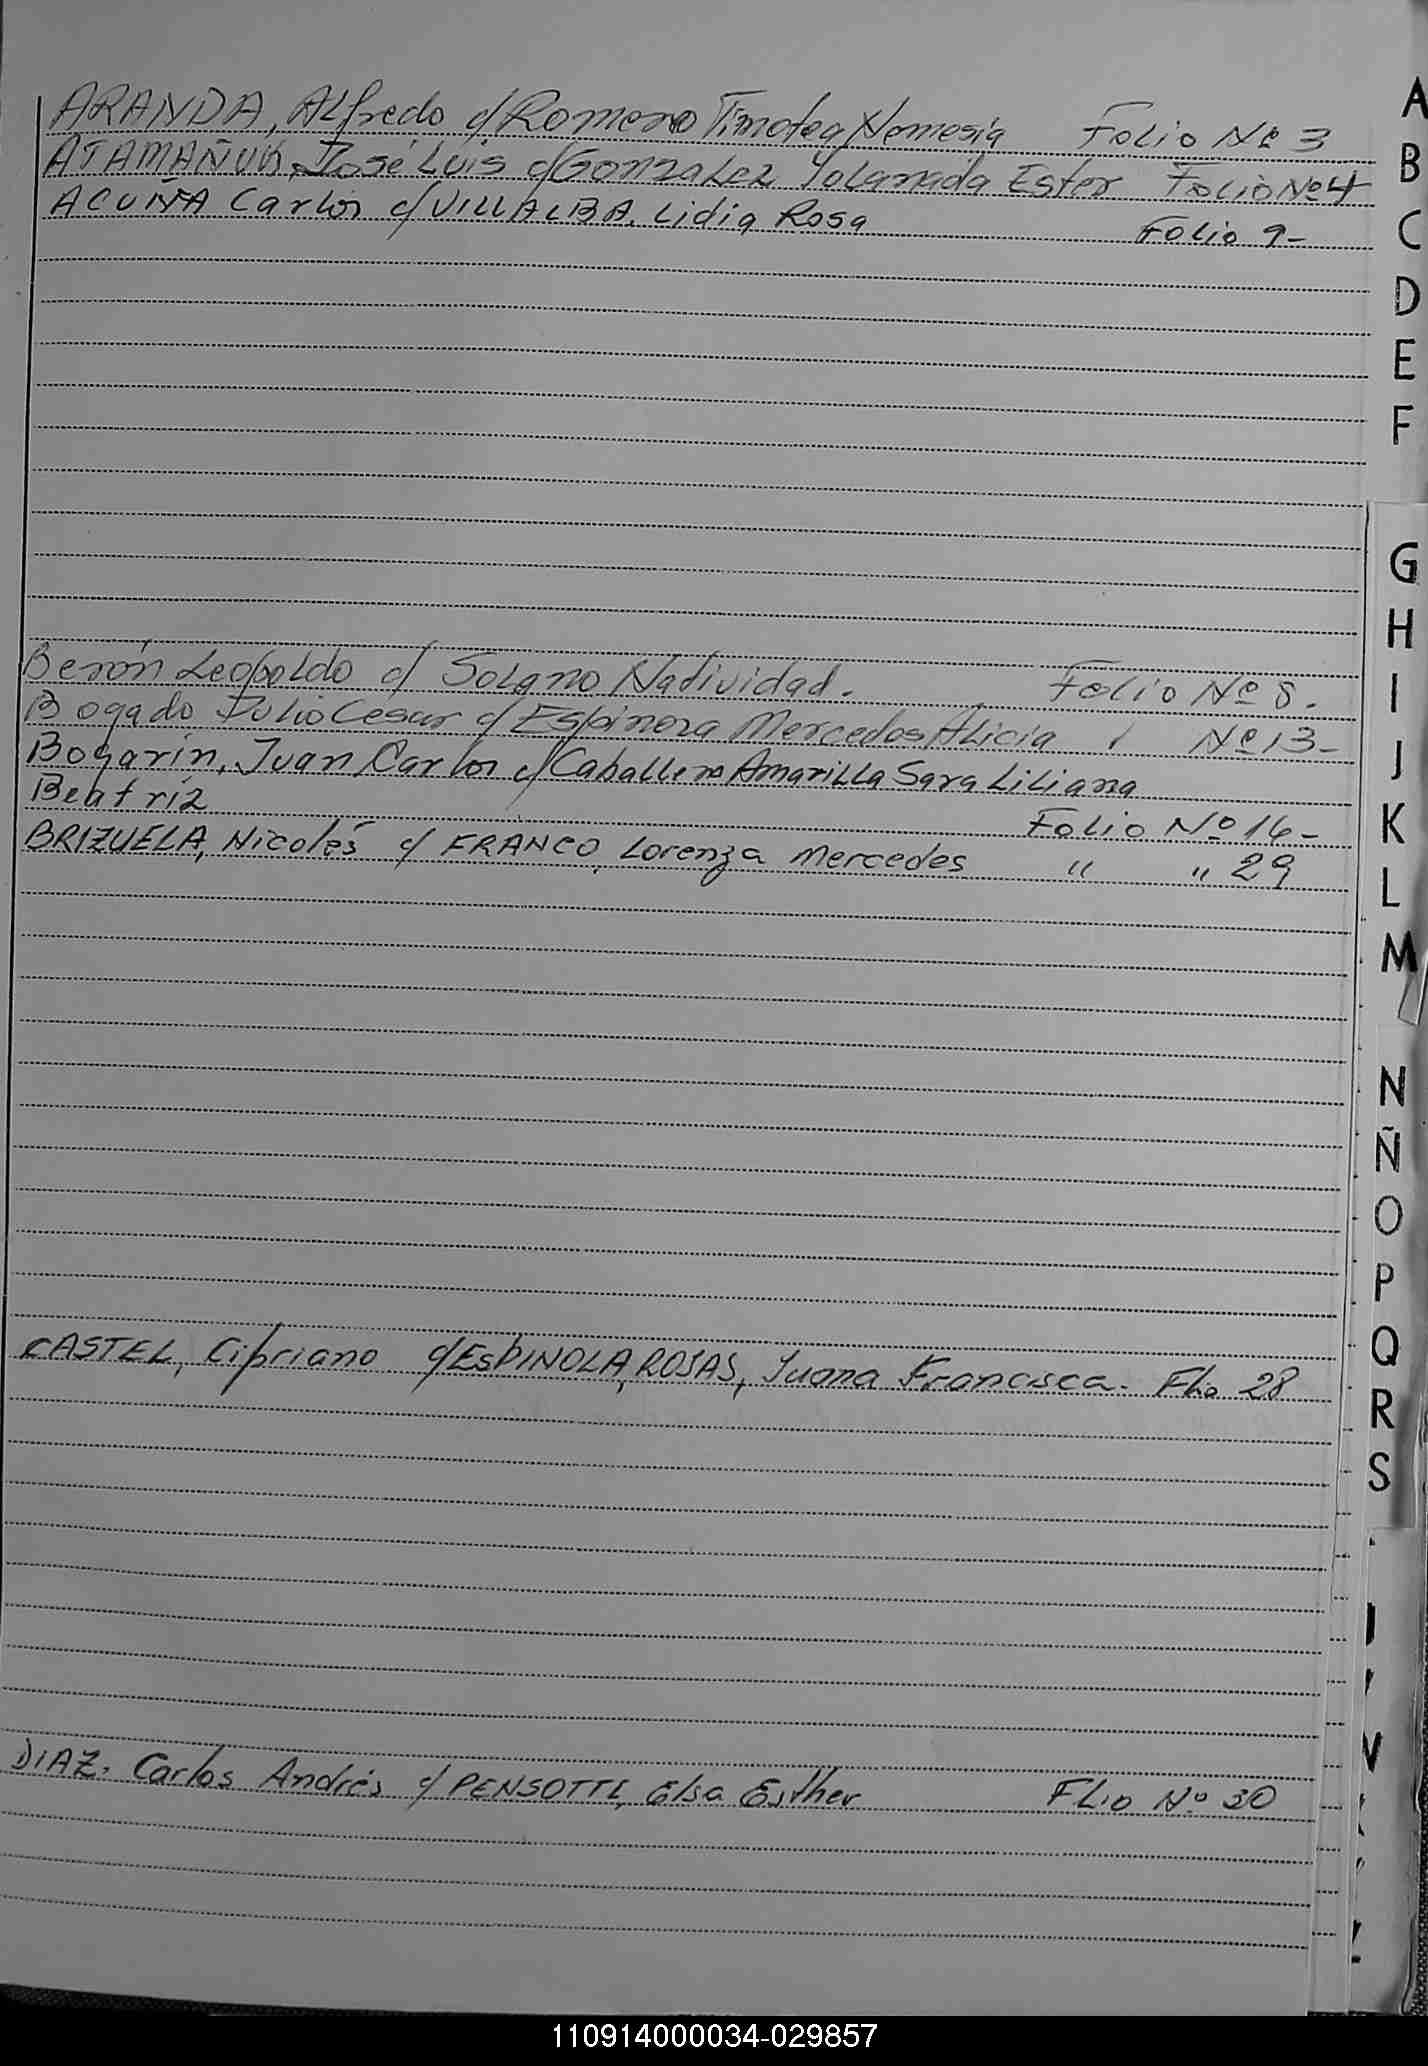 ARANDA, Alfredo c/ Romero Timotea Nemesia Folio Nº 3
ATAMAÑUK, José Luis c/ Gonzalez Yolanada Ester Folio Nº 4
ACUÑA Carlos c/ VILLALBA, Lidia Rosa Folio 9-
Berón Leopoldo c/ Solano Natividad. Folio Nº 8.
Bogado Julio Cesar c/ Espinoza Mercedes Alicia Nº 13-
Bogarín, Juan Carlos c/ Caballero Amarilla Sara Liliana
Beatríz Folio Nº 14-
BRIZUELA, Nicolás c/ FRANCO, Lorenza Mercedes " " 29
CASTEL, Cipriano c/ ESPINOLA, ROJAS, Juana Francisca. Flio 28
DIAZ, Carlos Andrés c/ PENSOTTI, Elsa Esther Flio Nº 30
A
B
C
D
E
F
G
H
I
J
K
L
M
N
Ñ
O
P
Q
R
S
110914000034-029857